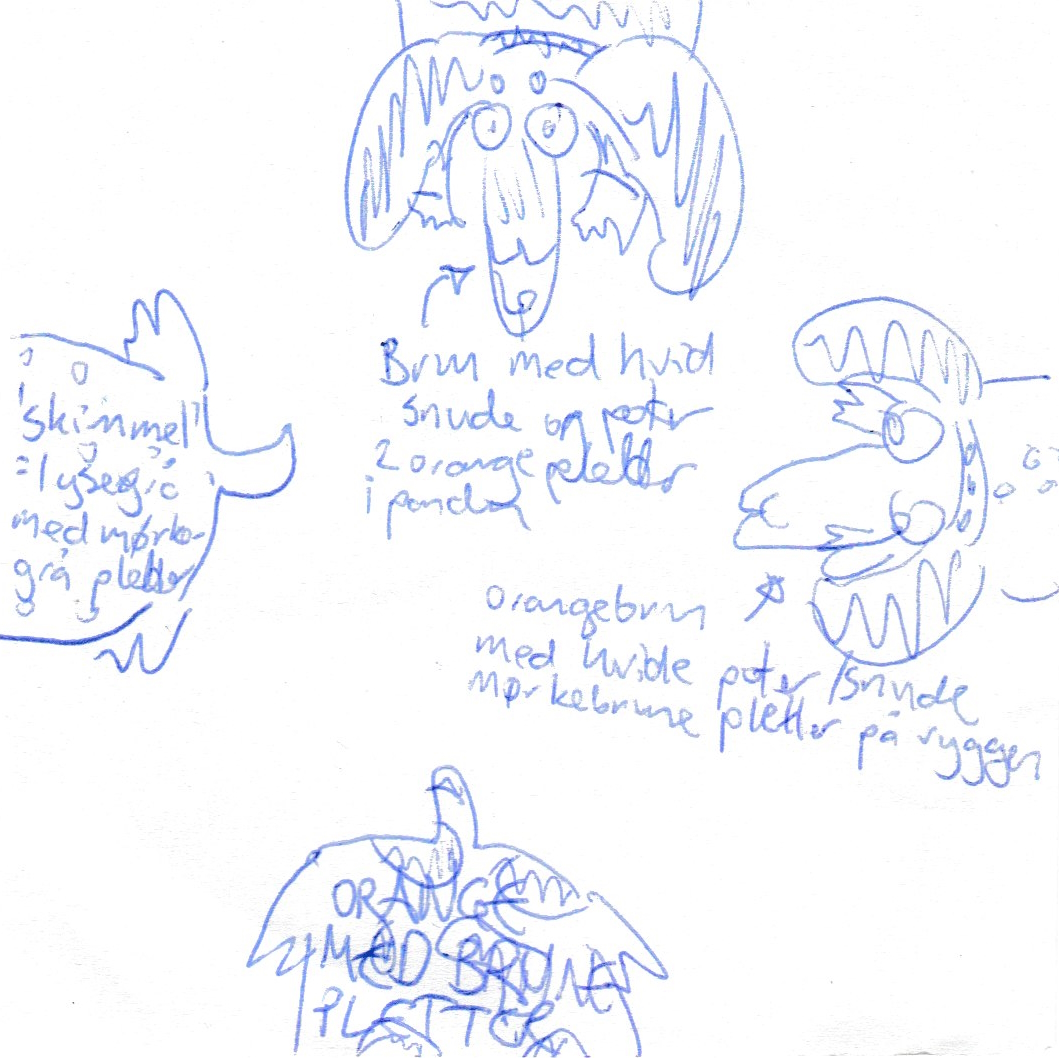 Brun med hvid
snude og poter
2 orange pletter
i panden
'skimmel'
=lysegrå
med mørke-
grå pletter
orangebrun
med hvide poter/snude
mørkebrune pletter på ryggen
ORANGE
MED BRUNE
PLETTER